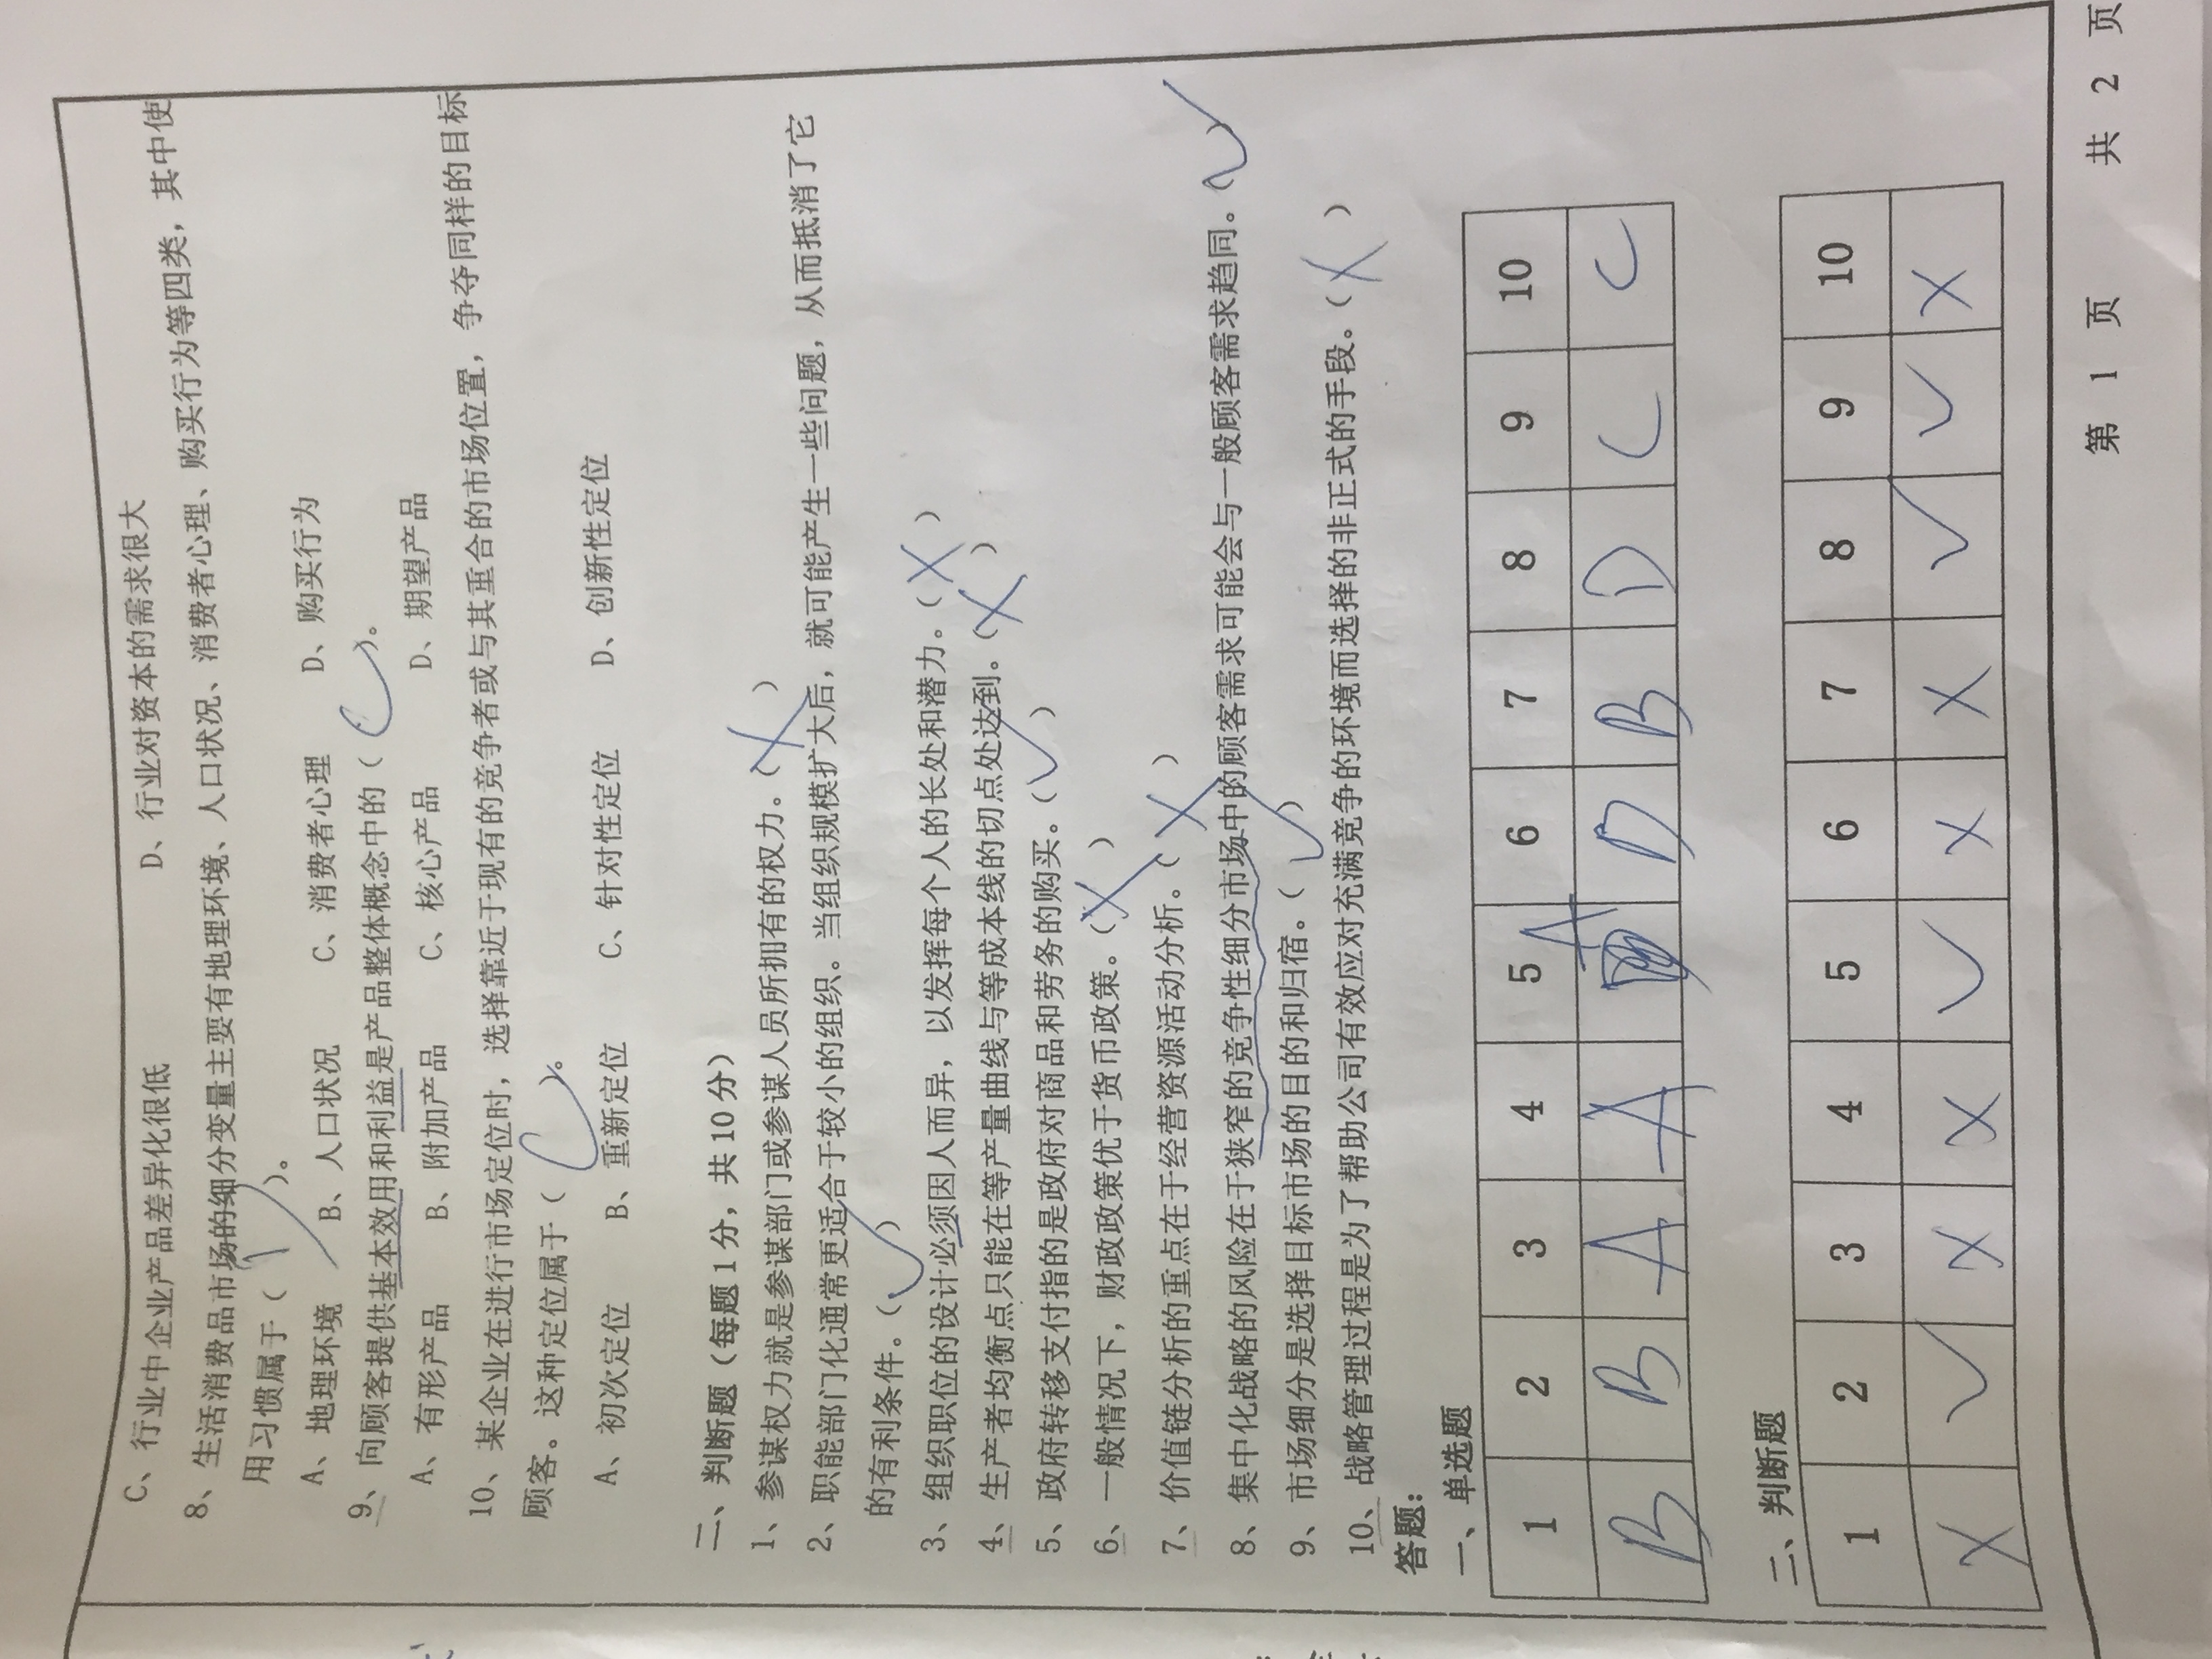 C、行业中企业产品差异化很低 D、行业对资本的需求很大
8、生活消费品市场的细分变量主要有地理环境、人口状况、消费者心理、购买行为等四类，其中使
用习惯属于（ D ）。
A、地理环境 B、人口状况 C、消费者心理 D、购买行为
9、向顾客提供基本效用和利益是产品整体概念中的（ C ）。
A、有形产品 B、附加产品 C、核心产品 D、期望产品
10、某企业在进行市场定位时，选择靠近于现有的竞争者或与其重合的市场位置，争夺同样的目标
顾客。这种定位属于（ C ）。
A、初次定位 B、重新定位 C、针对性定位 D、创新性定位
二、判断题（每题1分，共10分）
1、参谋权力就是参谋部门或参谋人员所拥有的权力。（ X ）
2、职能部门化通常更适合于较小的组织。当组织规模扩大后，就可能产生一些问题，从而抵消了它
的有利条件。（ ✓ ）
3、组织职位的设计必须因人而异，以发挥每个人的长处和潜力。（ X ）
4、生产者均衡点只能在等产量曲线与等成本线的切点处达到。（ X ）
5、政府转移支付指的是政府对商品和劳务的购买。（ ✓ ）
6、一般情况下，财政政策优于货币政策。（ X ）
7、价值链分析的重点在于经营资源活动分析。（ X ）
8、集中化战略的风险在于狭窄的竞争性细分市场中的顾客需求可能会与一般顾客需求趋同。（ ✓ ）
9、市场细分是选择目标市场的目的和归宿。（ ✓ ）
10、战略管理过程是为了帮助公司有效应对充满竞争的环境而选择的非正式的手段。（ X ）
答题：
一、单选题
1 2 3 4 5 6 7 8 9 10
B B A A A D B D C C
二、判断题
1 2 3 4 5 6 7 8 9 10
X ✓ X X ✓ X X ✓ ✓ X
第 1 页 共 2 页